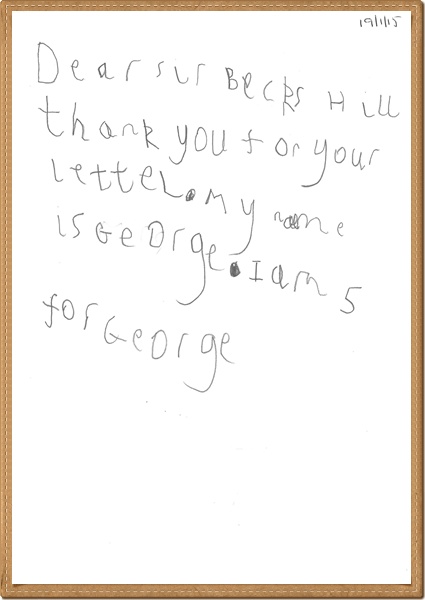 19/1/15
Dear sur Becks Hill
thank you for your
letter. My name
is George. I am 5
for George